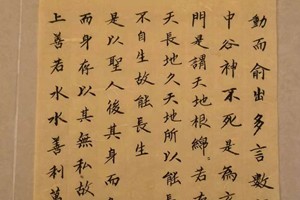 動而俞出多言數
中谷神不死是為玄
門是謂天地根綿若
天長地久天地所以能長
不自生故能長生
是以聖人後其身而
而身存以其無私故
上善若水水善利萬